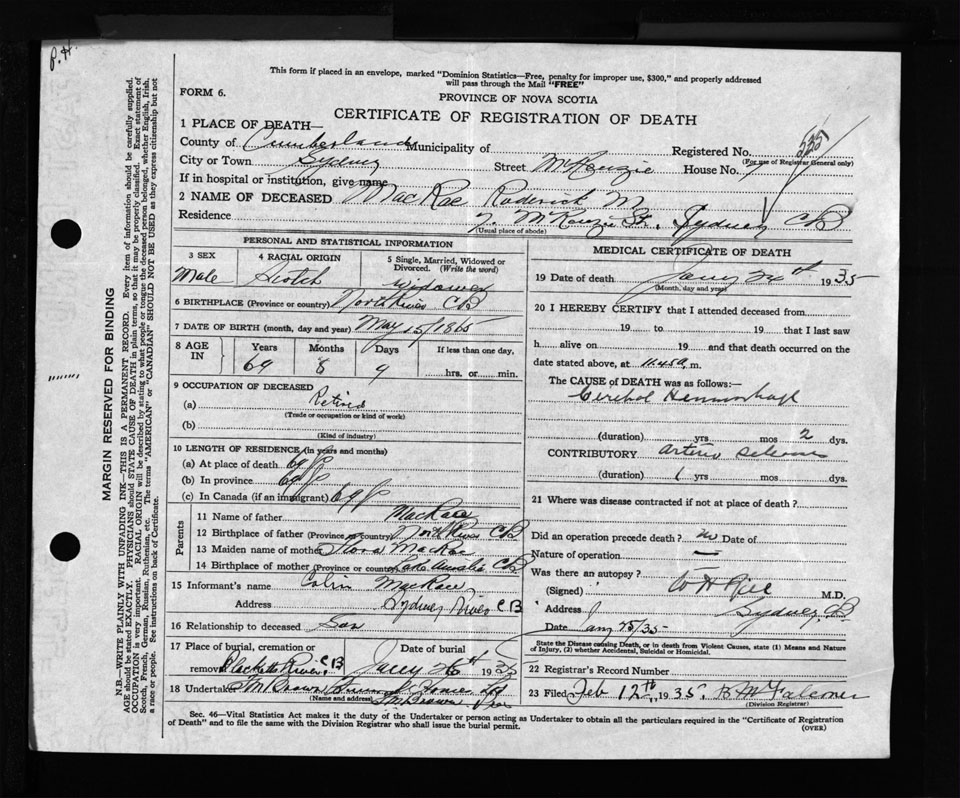 P. H.
This form if placed in an envelope, marked "Dominion Statistics—Free, penalty for improper use, $300," and properly addressed
will pass through the Mail "FREE"
FORM 6.
PROVINCE OF NOVA SCOTIA
CERTIFICATE OF REGISTRATION OF DEATH
1 PLACE OF DEATH—
County of Cumberland Municipality of Registered No. 535
(For use of Registrar General only)
City or Town Sydney Street McKenzie House No. 7
If in hospital or institution, give name
2 NAME OF DECEASED MacRae Roderick M
Residence 7 McKenzie St., Sydney CB
(Usual place of abode)
PERSONAL AND STATISTICAL INFORMATION
3 SEX 4 RACIAL ORIGIN 5 Single, Married, Widowed or
Divorced. (Write the word)
Male Scotch Widower
6 BIRTHPLACE (Province or country) North River CB
7 DATE OF BIRTH (month, day and year) May 15/1865
8 AGE IN Years Months Days If less than one day,
69 8 9 hrs. or min.
9 OCCUPATION OF DECEASED
(a) Retired
(Trade or occupation or kind of work)
(b)
(Kind of industry)
10 LENGTH OF RESIDENCE (in years and months)
(a) At place of death 69
(b) In province 69
(c) In Canada (if an immigrant) 69
Parents
11 Name of father MacRae
12 Birthplace of father (Province or country) North River CB
13 Maiden name of mother Flora MacRae
14 Birthplace of mother (Province or country) Lake Ainslie CB
15 Informant's name Colin MacRae
Address Sydney River CB
16 Relationship to deceased Son
17 Place of burial, cremation or Date of burial
removal Blacketts River, CB 26th 1935
18 Undertaker
(Name and address)
MEDICAL CERTIFICATE OF DEATH
19 Date of death Jany 24th 1935
(Month, day and year)
20 I HEREBY CERTIFY that I attended deceased from
19 to 19 that I last saw
h alive on 19 and that death occurred on the
date stated above, at m.
The CAUSE of DEATH was as follows:—
Cerebral Hemorrhage
(duration) yrs mos 2 dys.
CONTRIBUTORY Arterio Sclerosis
(duration) 1 yrs mos dys.
21 Where was disease contracted if not at place of death?
Did an operation precede death? no Date of
Nature of operation —
Was there an autopsy?
(Signed) M.D.
Address Sydney, CB
Date Jany 25/35
State the Disease causing Death, or in death from Violent Causes, state (1) Means and Nature
of Injury, (2) whether Accidental, Suicidal or Homicidal.
22 Registrar's Record Number
23 Filed Feb 12th 1935.
(Division Registrar)
Sec. 46—Vital Statistics Act makes it the duty of the Undertaker or person acting as Undertaker to obtain all the particulars required in the "Certificate of Registration
of Death" and to file the same with the Division Registrar who shall issue the burial permit.
(OVER)
MARGIN RESERVED FOR BINDING
N.B.—WRITE PLAINLY WITH UNFADING INK—THIS IS A PERMANENT RECORD. Every item of information should be carefully supplied.
AGE should be stated EXACTLY. PHYSICIANS should STATE CAUSE OF DEATH in plain terms, so that it may be properly classified. Exact statement of
OCCUPATION is very important. RACIAL ORIGIN will be described by stating to what people or tongue the deceased person belonged, whether English, Irish,
Scotch, French, German, Russian, Ruthenian, etc. The terms "AMERICAN" or "CANADIAN" SHOULD NOT BE USED as they express citizenship but not
a race or people. See instructions on back of Certificate.